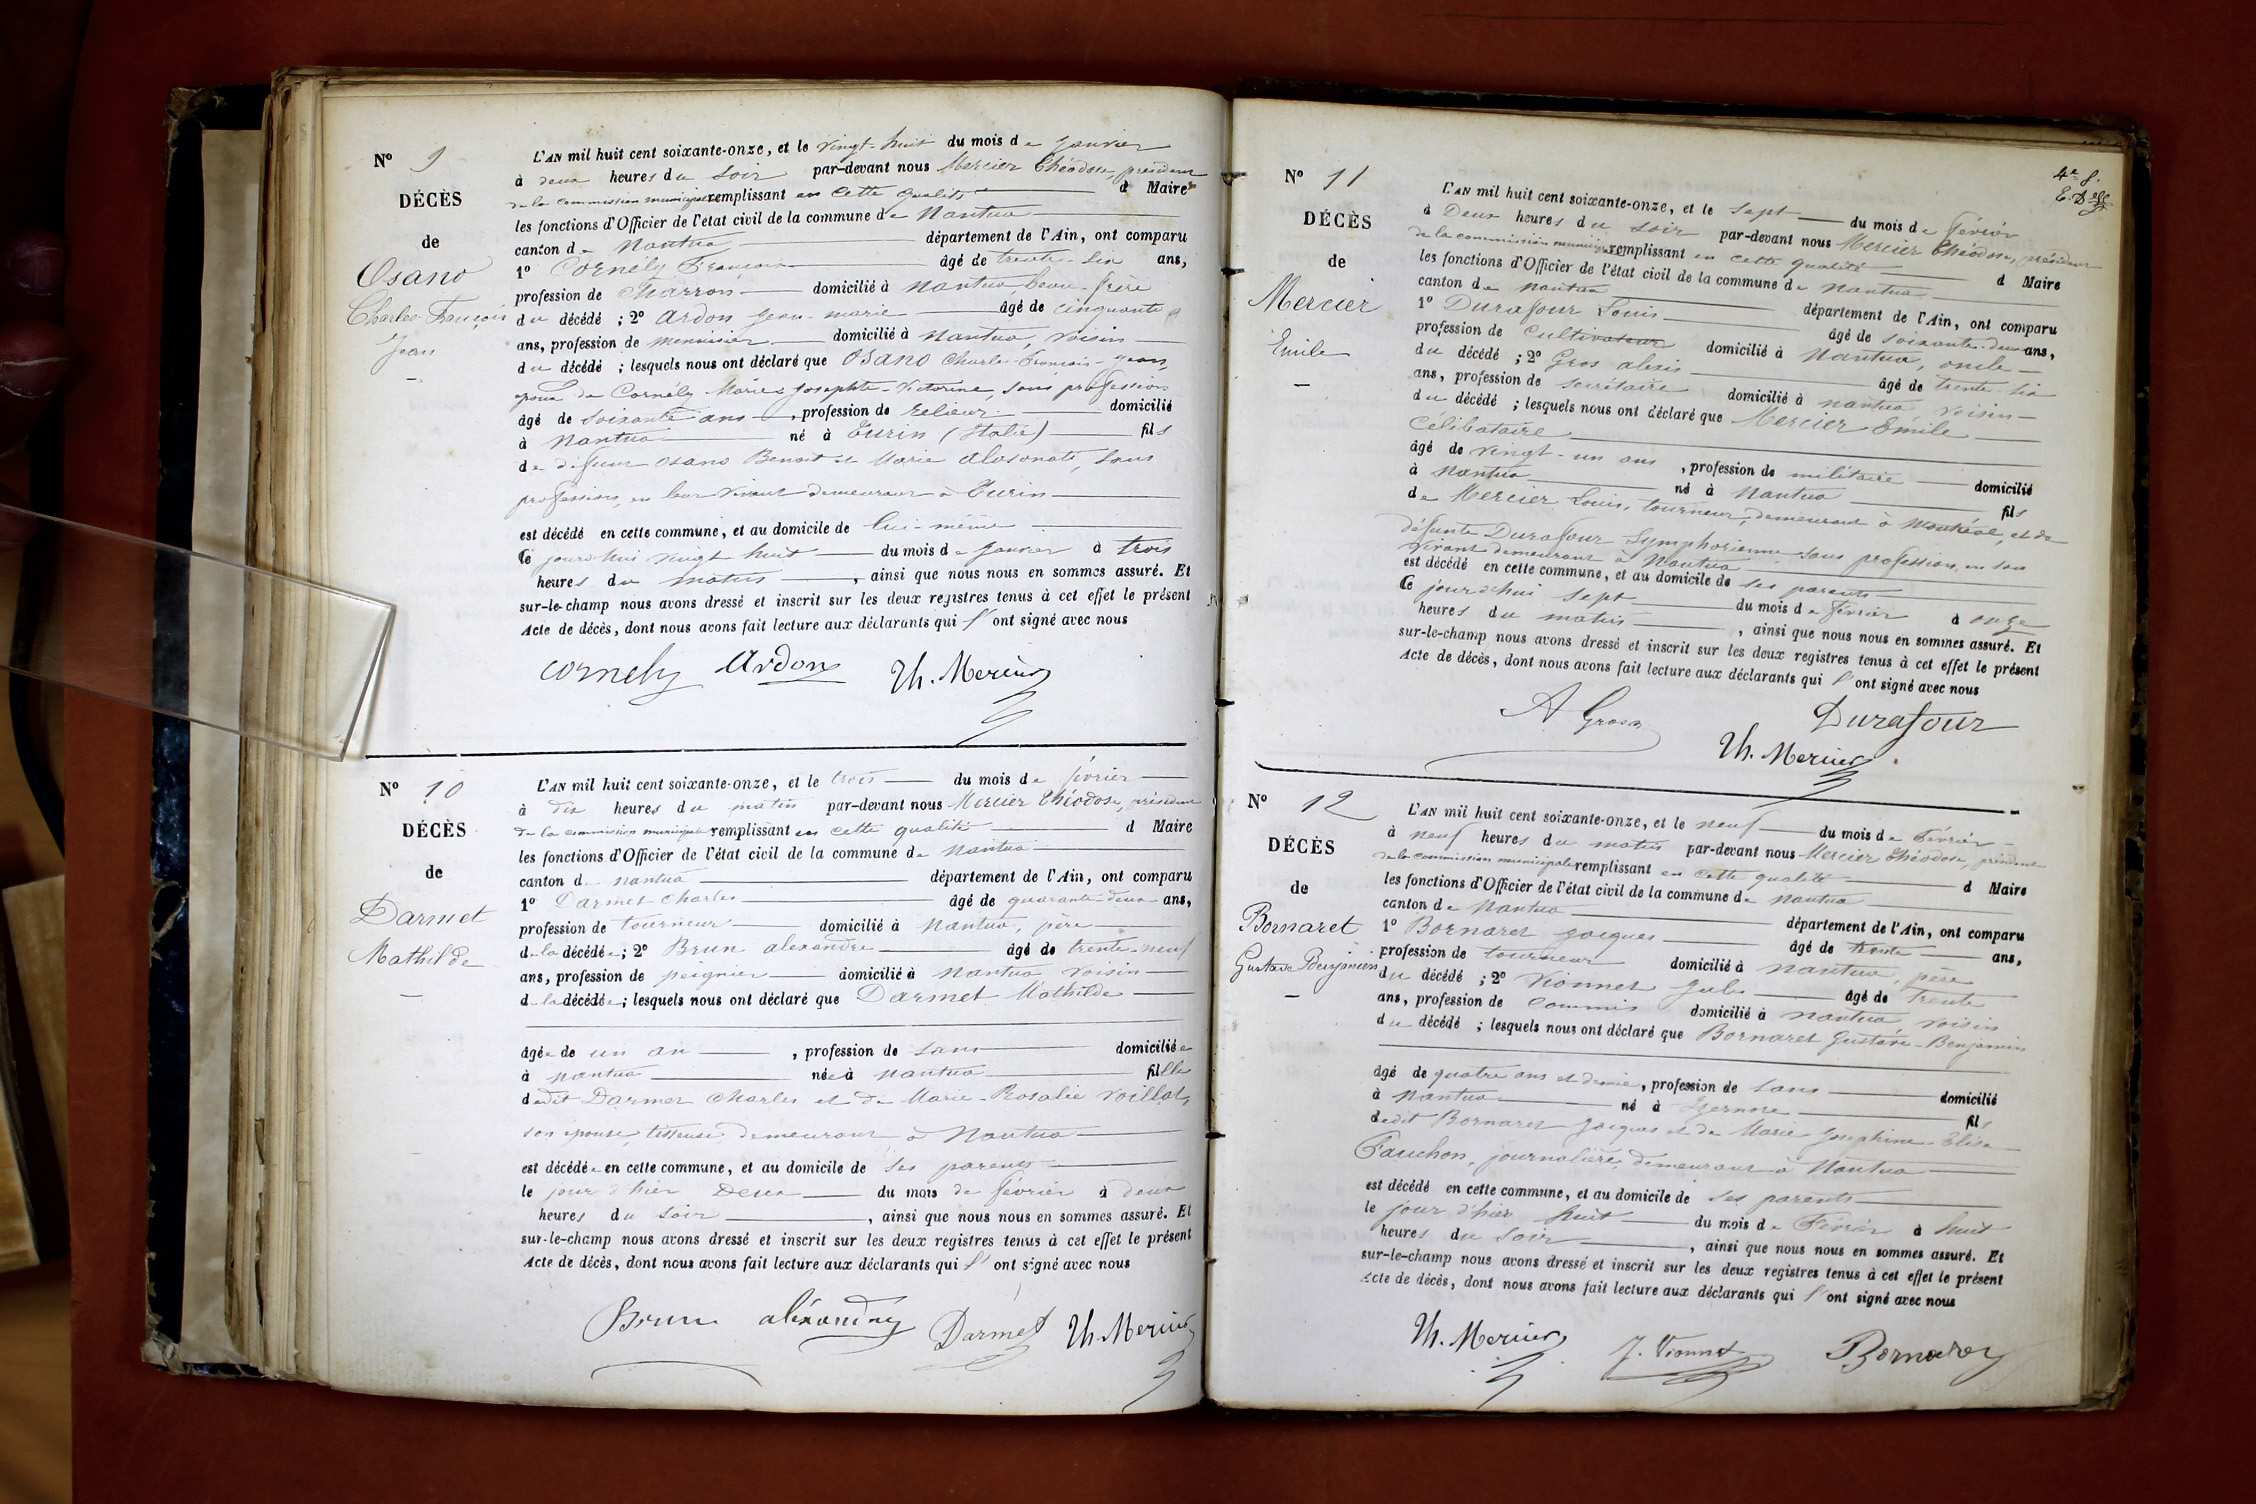 N° 9
DÉCÈS
de
Osano
Charles-François
Jean
L'AN mil huit cent soixante-onze, et le vingt-huit du mois de janvier
à deux heures du soir par-devant nous Mercier Théodose, président
de la commission municipale remplissant en cette qualité d Maire
les fonctions d'Officier de l'état civil de la commune de Nantua
canton de Nantua département de l'Ain, ont comparu
1° Cornély François âgé de trente-six ans,
profession de Charron domicilié à Nantua, beau-frère
du décédé ; 2° Ardon Jean-marie âgé de cinquante
ans, profession de menuisier domicilié à Nantua, voisin
du décédé ; lesquels nous ont déclaré que Osano Charles-François-Jean,
époux de Cornély Marie-Josephte-Victorine, sans profession
âgé de soixante ans, profession de relieur domicilié
à Nantua né à Turin (Italie) fils
de défunts Osano Benoit et Marie, sans
profession, en leur vivant demeurant à Turin
est décédé en cette commune, et au domicile de lui-même
Ce jourd'hui vingt huit du mois de janvier à trois
heures du matin, ainsi que nous nous en sommes assuré. Et
sur-le-champ nous avons dressé et inscrit sur les deux registres tenus à cet effet le présent
Acte de décès, dont nous avons fait lecture aux déclarants qui l' ont signé avec nous
Cornely Ardon Th. Mercier
N° 10
DÉCÈS
de
Darmet
Mathilde
L'AN mil huit cent soixante-onze, et le trois du mois de février
à dix heures du matin par-devant nous Mercier Théodose, président
de la commission municipale remplissant en cette qualité d Maire
les fonctions d'Officier de l'état civil de la commune de Nantua
canton d nantua département de l'Ain, ont comparu
1° Darmet Charles âgé de quarante-deux ans,
profession de tourneur domicilié à Nantua, père
de la décédée ; 2° Brun alexandre âgé de trente-neuf
ans, profession de peignier domicilié à Nantua voisin
de la décédée ; lesquels nous ont déclaré que Darmet Mathilde
âgée de un an, profession de sans domiciliée
à nantua née à nantua fille
dudit Darmet Charles et de Marie-Rosalie Voillat,
son épouse, tisseuse demeurant à Nantua
est décédée en cette commune, et au domicile de ses parents
le jour d'hier Deux du mois de février à deux
heures du soir, ainsi que nous nous en sommes assuré. Et
sur-le-champ nous avons dressé et inscrit sur les deux registres tenus à cet effet le présent
Acte de décès, dont nous avons fait lecture aux déclarants qui l' ont signé avec nous
Brun alexandre Darmet Th. Mercier
4e f.
N° 11
DÉCÈS
de
Mercier
Emile
L'AN mil huit cent soixante-onze, et le sept du mois de février
à Deux heures du soir par-devant nous Mercier Théodose, président
de la commission municipale remplissant en cette qualité d Maire
les fonctions d'Officier de l'état civil de la commune de nantua
canton de nantua département de l'Ain, ont comparu
1° Durafour Louis âgé de soixante-deux ans,
profession de Cultivateur domicilié à Nantua, oncle
du décédé ; 2° Gros alexis âgé de trente-six
ans, profession de secrétaire domicilié à nantua, voisin
du décédé ; lesquels nous ont déclaré que Mercier Emile
Célibataire
âgé de vingt-un ans, profession de militaire domicilié
à Nantua né à Nantua fils
de Mercier Louis, tourneur, demeurant à Montréal et de
défunte Durafour Symphorienne sans profession, en son
vivant demeurant à Nantua
est décédé en cette commune, et au domicile de ses parents
Ce jourd'hui sept du mois de février à onze
heures du matin, ainsi que nous nous en sommes assuré. Et
sur-le-champ nous avons dressé et inscrit sur les deux registres tenus à cet effet le présent
Acte de décès, dont nous avons fait lecture aux déclarants qui l' ont signé avec nous
A Gros Durafour
Th. Mercier
N° 12
DÉCÈS
de
Bornaret
Gustave Benjamin
L'AN mil huit cent soixante-onze, et le neuf du mois de Février
à neuf heures du matin par-devant nous Mercier Théodose, président
de la commission municipale remplissant en cette qualité d Maire
les fonctions d'Officier de l'état civil de la commune de nantua
canton de Nantua département de l'Ain, ont comparu
1° Bornaret Jacques âgé de trente ans,
profession de tourneur domicilié à nantua, père
du décédé ; 2° Vionnet Jules âgé de trente
ans, profession de Commis domicilié à nantua voisin
du décédé ; lesquels nous ont déclaré que Bornaret Gustave-Benjamin
âgé de quatre ans et demie, profession de sans domicilié
à Nantua né à Izernore fils
dudit Bornaret Jacques et de Marie Josephine Elise
Fauchon, journalière, demeurant à Nantua
est décédé en cette commune, et au domicile de ses parents
le jour d'hier huit du mois de Février à huit
heures du soir, ainsi que nous nous en sommes assuré. Et
sur-le-champ nous avons dressé et inscrit sur les deux registres tenus à cet effet le présent
Acte de décès, dont nous avons fait lecture aux déclarants qui l' ont signé avec nous
Th. Mercier J. Vionnet Bornaret